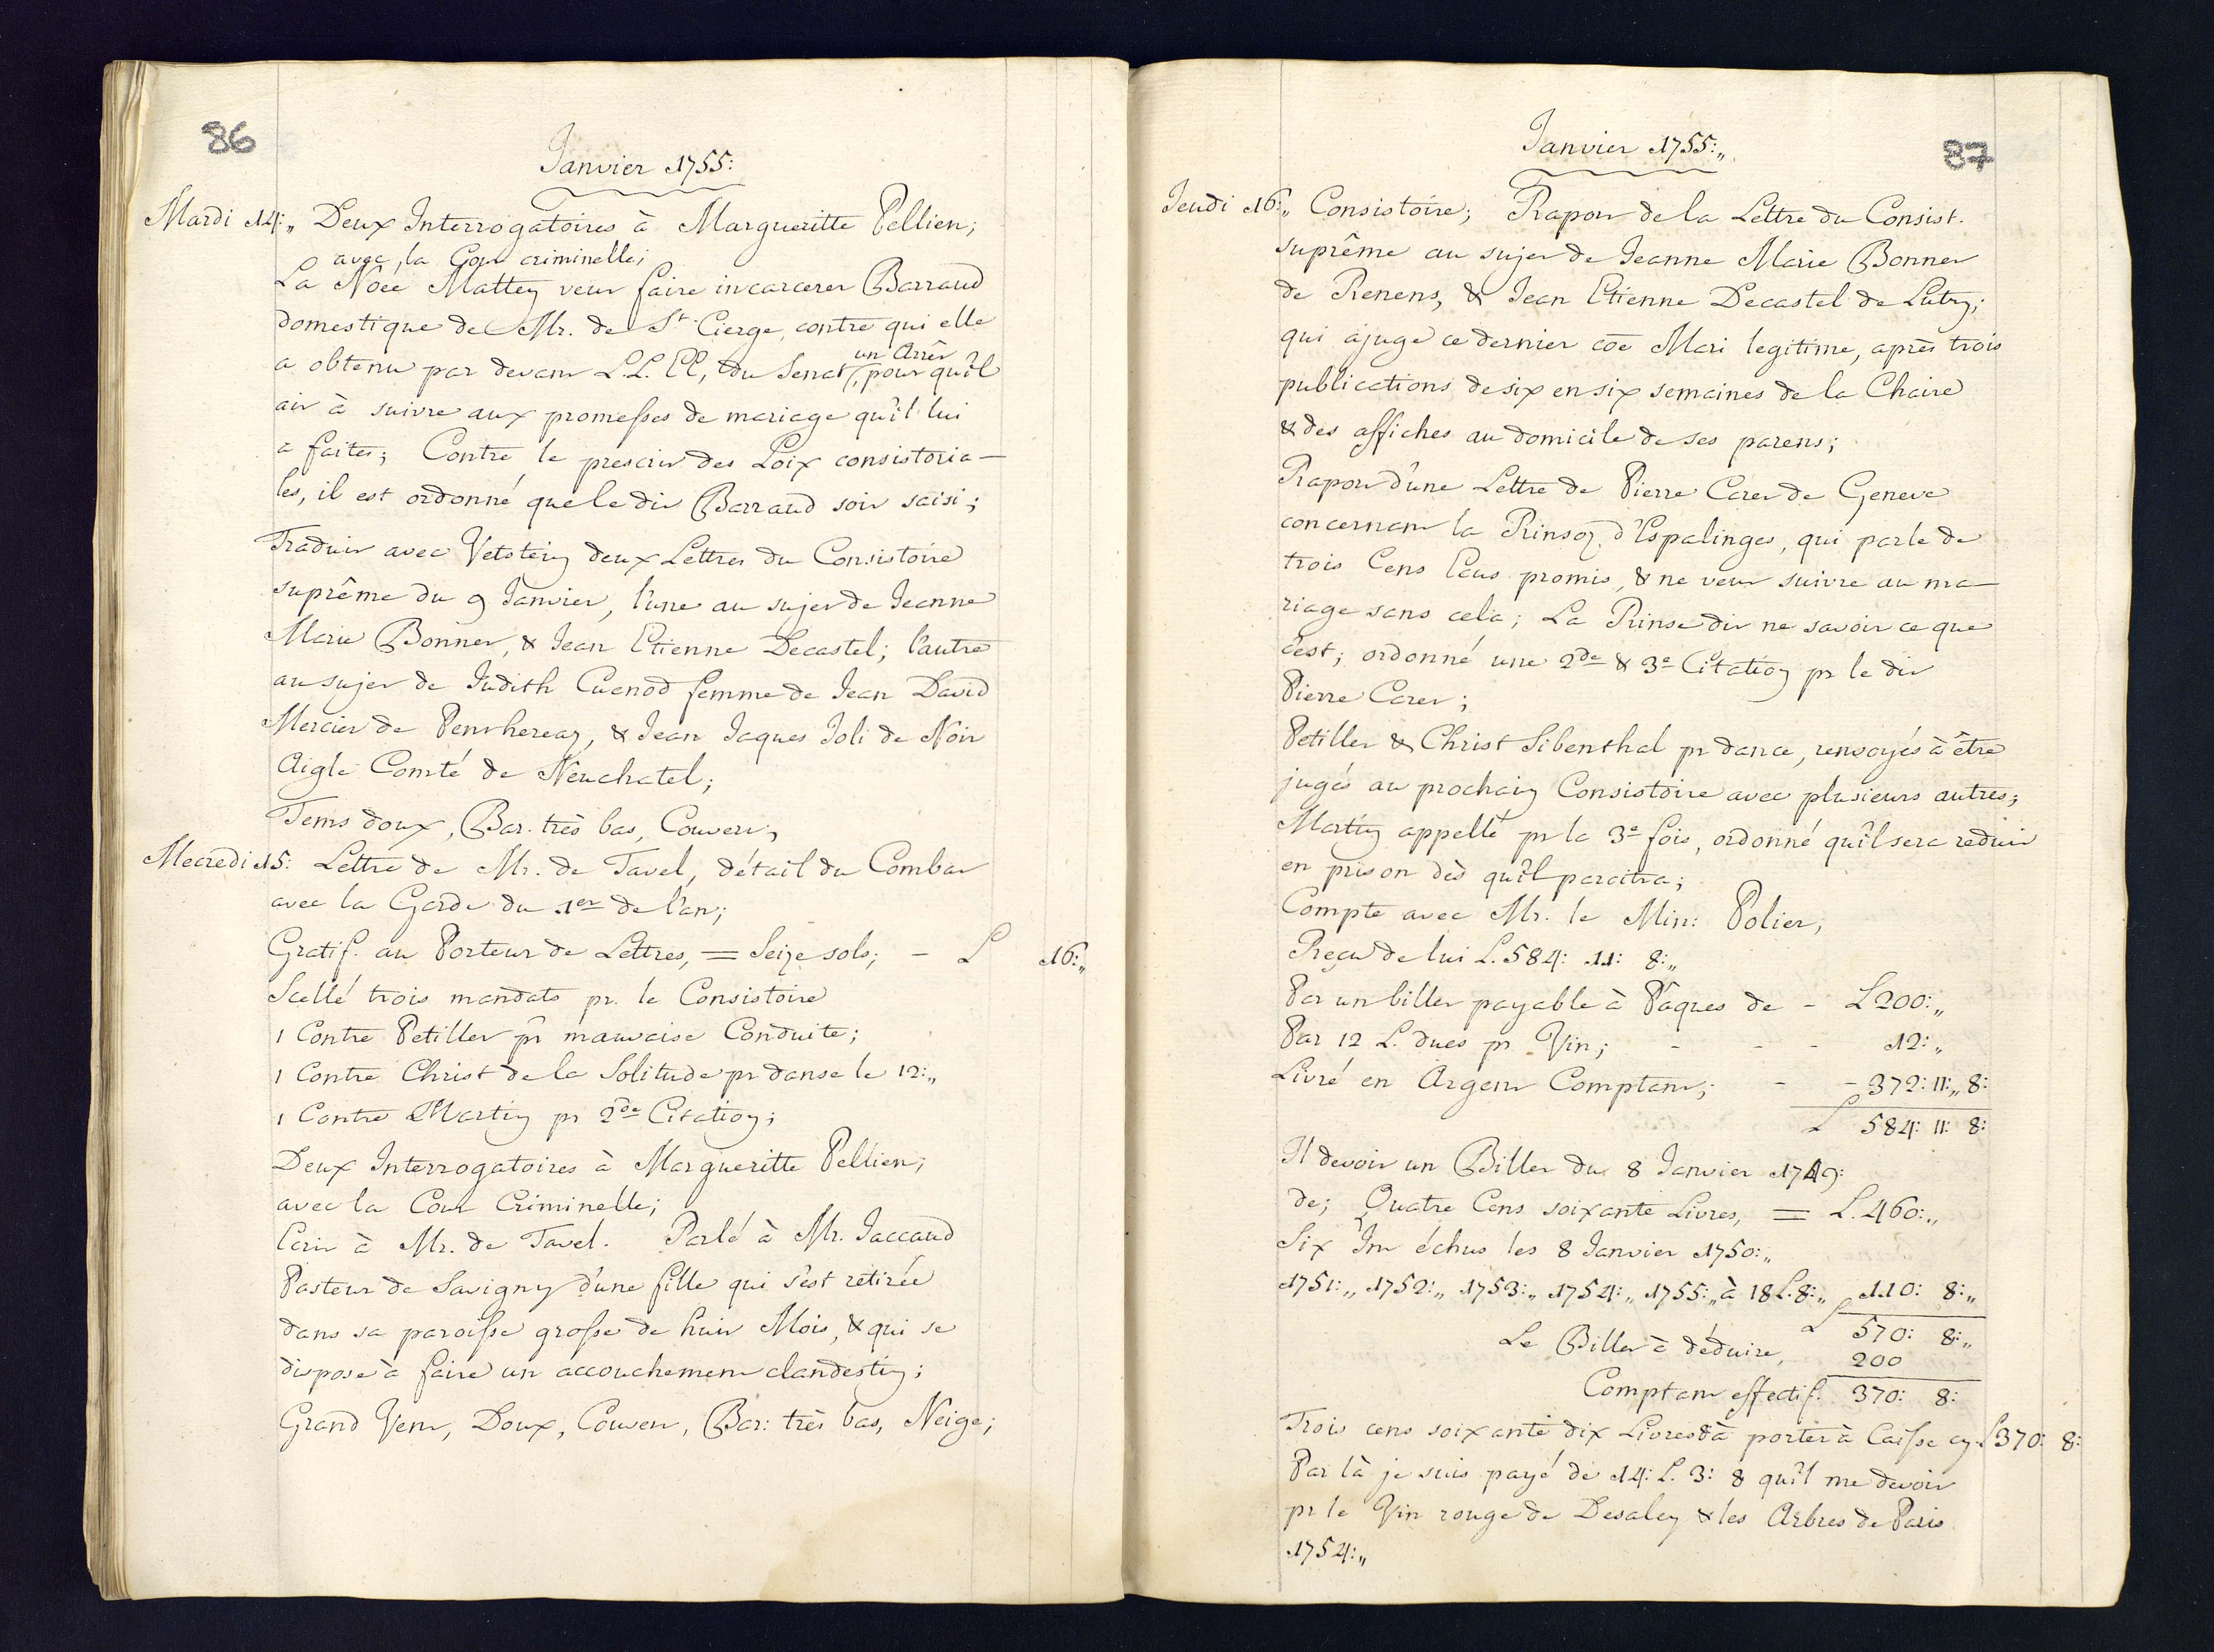 86
Janvier 1755:
Mardi 14:„ Deux Interrogatoires à Margueritte Pellien;
avec la Cour criminelle;
La Noée Mattey veut faire incarcerer Barraud
domestique de Mr. de St. Cierge, contre qui elle
un Arrêt
a obtenu par devant L.L. EE, du Senat, pour qu'il
ait à suivre aux promesses de mariage qu'il lui
a faites; Contre le prescrit des Loix consistoria-
les, il est ordonné que le dit Barraud soit saisi;
Traduit avec Vetstein deux Lettres du Consistoire
suprême du 9 Janvier, l'une au sujet de Jeanne
Marie Bonnet, & Jean Etienne Decastel; l'autre
au sujet de Judith Cuenod femme de Jean David
Mercier de Penthereaz, & Jean Jaques Joli de Noir
Aigle Comté de Neuchatel;
Tems doux, Bar. très bas, Couvert;
Mecredi 15: Lettre de Mr. de Tavel, détail du Combat
avec la Garde du 1er de l'an;
Gratif. au Porteur de Lettres, = Seize sols; - L 16:„
Scellé trois mandats pr. le Consistoire
1 Contre Petillet pr mauvaise Conduite;
1 Contre Christ de la Solitude pr danse le 12:„
1 Contre Martin pr 2de Citation;
Deux Interrogatoires à Margueritte Pellien;
avec la Cour Criminelle;
Ecrit à Mr. de Tavel. Parlé à Mr. Jaccaud
Pasteur de Savigny d'une fille qui s'est retirée
dans sa paroisse grosse de huit Mois, & qui se
dispose à faire un accouchement clandestin;
Grand Vent, Doux, Couvert, Bar: très bas, Neige;
87
Janvier 1755:„
Jeudi 16:„ Consistoire; Raport de la Lettre du Consist.
suprême au sujet de Jeanne Marie Bonnet
de Renens, & Jean Etienne Decastel de Lutry;
qui ajuge ce dernier cõe Mari legitime, après trois
publications de six en six semaines de la Chaire
& des affiches au domicile de ses parens;
Raport d'une Lettre de Pierre Caret de Geneve
concernant la Rinsoz d'Espalinges, qui parle de
trois Cens Ecus promis, & ne veut suivre au ma-
riage sans cela; La Rinse dit ne savoir ce que
c'est; ordonné une 2de & 3e Citation pr le dit
Pierre Caret;
Petillet & Christ Sibenthal pr dance, renvoyés à être
jugés au prochain Consistoire avec plusieurs autres;
Martin appellé pr la 3e fois, ordonné qu'il sera reduit
en prison dès qu'il paraitra;
Compte avec Mr. le Min: Polier;
Reçu de lui L. 584: 11: 8:„
Par un billet payable à Pâques de - L 200:„
Par 12 L. dues pr Vin; - - - 12:„
Livré en Argent Comptant; - - 372: 11:„ 8:
L 584: 11: 8:
Il devoit un Billet du 8 Janvier 1749:
de; Quatre Cens soixante Livres, = L. 460:„
Six Int échus les 8 Janvier 1750:„
1751:„ 1752:„ 1753:„ 1754:„ 1755:„ à 18 L. 8:„ 110: 8:„
L 570: 8:„
Le Billet à déduire, 200
Comptant effectif. 370: 8:
Trois cens soixante dix Livres 8 à porter à Caisse cy. L 370: 8:
Par là je suis payé de 14: L. 3: 8 qu'il me devoit
pr le Vin rouge de Desaley & les Arbres de Paris
1754:„